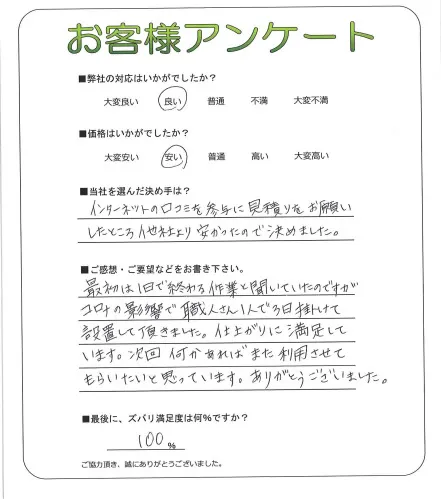 お客様アンケート
■弊社の対応はいかがでしたか?
大変良い 良い 普通 不満 大変不満
■価格はいかがでしたか?
大変安い 安い 普通 高い 大変高い
■当社を選んだ決め手は?
インターネットの口コミを参考に見積りをお願い
したところ他社より安かったので決めました。
■ご感想・ご要望などをお書き下さい。
最初は1日で終わる作業と聞いていたのですが
コロナの影響で職人さん1人で3日掛けて
設置して頂きました。仕上がりに満足して
います。次回何かあればまた利用させて
もらいたいと思っています。ありがとうございました。
■最後に、ズバリ満足度は何%ですか?
100%
ご協力頂き、誠にありがとうございました。